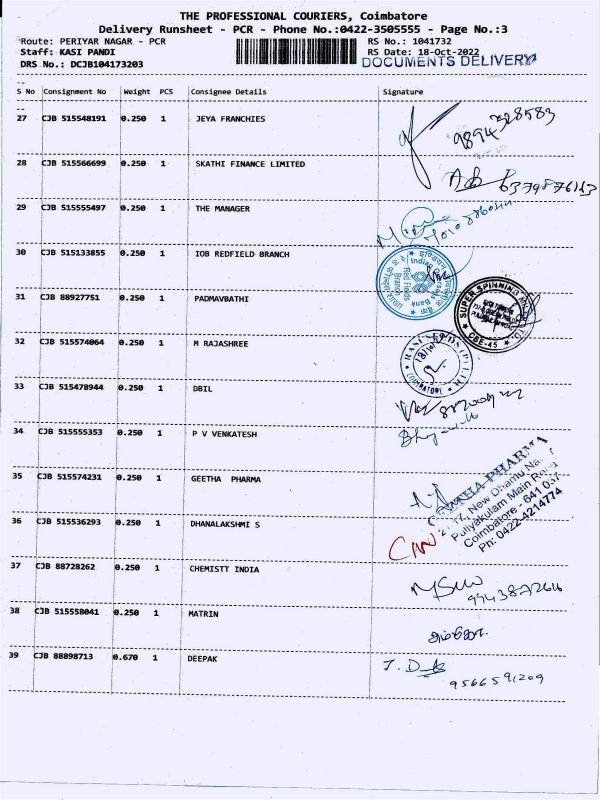 THE PROFESSIONAL COURIERS, Coimbatore
Delivery Runsheet - PCR - Phone No.:0422-3505555 - Page No.:3
Route: PERIYAR NAGAR - PCR RS No.: 1041732
Staff: KASI PANDI RS Date: 18-Oct-2022
DRS No.: DCJB104173203 DOCUMENTS DELIVERY
S No Consignment No Weight PCS Consignee Details Signature
27 CJB 515548191 0.250 1 JEYA FRANCHIES
9894328583
28 CJB 515566699 0.250 1 SKATHI FINANCE LIMITED
6379876113
29 CJB 515555497 0.250 1 THE MANAGER
30 CJB 515133855 0.250 1 IOB REDFIELD BRANCH
Indian Overseas Bank
Red Fields
Branch
31 CJB 88927751 0.250 1 PADMAVBATHI
SUPER SPINNING MILLS LTD.
CBE-45
32 CJB 515574064 0.250 1 M RAJASHREE
COIMBATORE
33 CJB 515478944 0.250 1 DBIL
34 CJB 515555353 0.250 1 P V VENKATESH
35 CJB 515574231 0.250 1 GEETHA PHARMA
GEETHA PHARMA
New Dhamu Na
Puliyakulam Main Road
Coimbatore - 641 037
Pn: 0422-4214774
36 CJB 515536293 0.250 1 DHANALAKSHMI S
37 CJB 88728262 0.250 1 CHEMISTT INDIA
9943872616
38 CJB 515558041 0.250 1 MATRIN
39 CJB 88898713 0.670 1 DEEPAK
9566591209